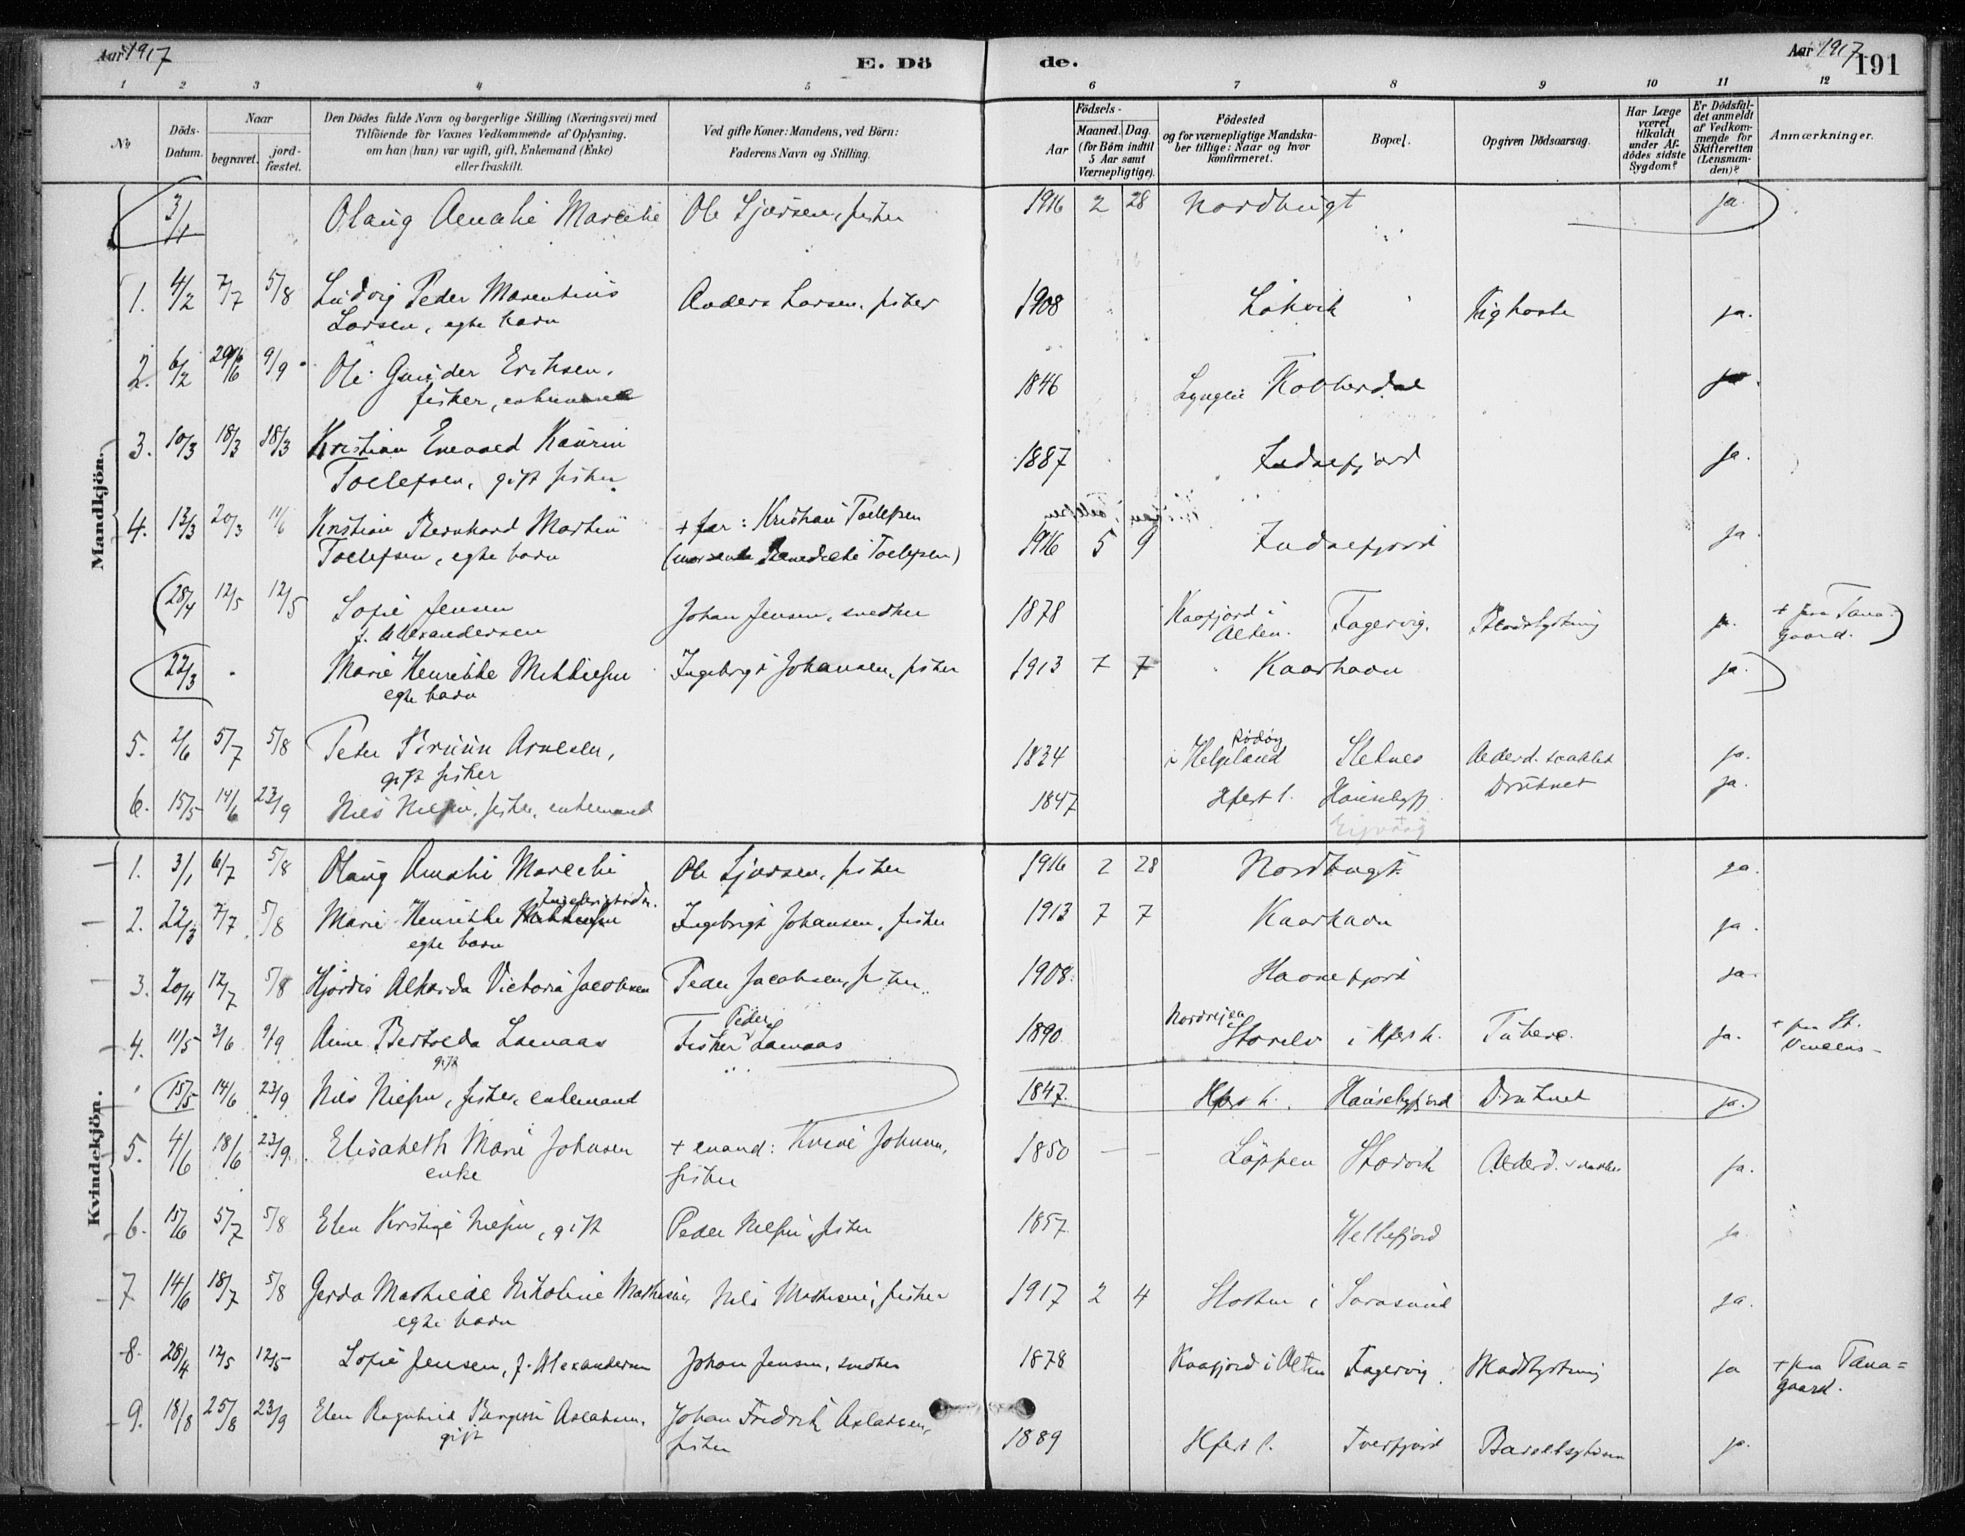 Aar 1917
E. Dö
de.
Aar 1917
191
1 2 3 4 5 6 7 8 9 10 11 12
No
Döds-Datum.
Naar
begravet.
jord-fæstet.
Den Dödes fulde Navn og borgerlige Stilling (Næringsvei) med
Tilföiende for Voxnes Vedkommende af Oplysning.
om han (hun) var ugift, gift, Enkemand (Enke)
eller fraskilt.
Ved gifte Koner: Mandens, ved Börn:
Faderens Navn og Stilling.
Födsels-
Aar
Maaned. Dag.
(for Börn indtil
5 Aar samt
Værnepligtige).
Födested
og for værnepligtige Mandska-
ber tillige: Naar og hvor
konfirmeret.
Bopæl.
Opgiven Dödsaarsag.
Har Læge
været
tilkaldt
under Af-
dödes sidste
Sygdom?
Er Dödsfal-
det anmeldt
af Vedkom-
mende for
Skifteretten
(Lensman-
den)?
Anmærkninger.
Mandkjön.
3/1 Olaug Amalie Marelie Ole Ljarsen, fisker 1916 2 28 Nordbugt ja.
1. 4/2 7/7 5/8 Ludvig Peder Marentinus Anders Larsen, fisker 1908 Lökvik Kighoste ja.
Larsen, egte barn
2. 6/2 29/6 9/9 Ole Gunder Eriksen, 1846 Kobberdal ja.
fisker, enkemand
3. 10/3 18/3 18/3 Kristian Enevold Kaurin 1887 Indrefjord ja.
Tollefsen, gift fisker
4. 13/3 20/3 11/6 Kristian Bernhard Martin + far: Kristian Tollefsen 1916 5 9 Indrefjord ja
Tollefsen, egte barn (mor enke Benedikte Tollefsen)
28/4 12/5 12/5 Sofie Jensen Johan Jensen, snedker 1878 Kaafjord i Alten. Fagervig. Blodstyrtning ja. + paa Tana-
f. Alexandersen gaard.
22/3 Marie Henrikke Mikkelsen Ingebrigt Johansen, fisker 1913 7 7 Kaarhavn ja.
egte barn
5. 2/6 5/7 5/8 Peder Bruun Arnesen, 1834 i Helgeland Rödöy Sletnes Alderd. svakhet ja.
gift fisker
6. 15/5 14/6 23/9 Nils Nilsen, fisker, enkemand 1847 Hfest l. Hönsebyfj. Druknet ja.
Kvindekjön.
1. 3/1 6/7 5/8 Olaug Amalie Marelie Ole Ljarsen, fisker 1916 2 28 Nordbugt ja.
2. 22/3 7/7 5/8 Marie Henrikke Mikkelsen Ingebrigtsdtr. Ingebrigt Johansen, fisker 1913 7 7 Kaarhavn ja.
egte barn
3. 20/4 12/7 5/8 Hjördis Alvarda Victoria Jacobsen Peder Jacobsen, fisker 1908. ja.
4. 11/5 3/6 9/9 Anne Bertolda Lamaas Fisker Peder Lamaas 1890 Nordreisa Storelv i Hfest l. Tuberk. ja. + paa St.
gift Vincens-
15/5 14/6 23/9 Nils Nilsen, fisker, enkemand 1847. Hfest l. Hönsebyfjord Druknet ja.
5. 4/6 18/6 23/9. Elisabeth Marie Johnsen + mand: Johnsen, 1850 Löppen Alderd. svakhet ja.
enke fisker
6. 15/6 5/7 5/8 Elen Kirstine Nilsen, gift Peder Nilsen, fisker 1857. Hellefjord ja
7 14/6 18/7 5/8 Gerda Mathilde Nikoline Mathisen, Nils Mathisen, fisker 1917 2 4 i Sörösund ja.
egte barn
8. 28/4 12/5 12/5 Sofie Jensen, f. Alexandersen Johan Jensen, snedker 1878 Kaafjord i Alten Fagervig Blodstyrtning ja + paa Tana=
gaard.
9. 18/8 25/8 23/9 Elen Ragnhild Bergitte Aslaksen, Johan Fredrik Aslaksen, 1889 Hfest l. Tverfjord Barselsykdom ja.
gift fisker